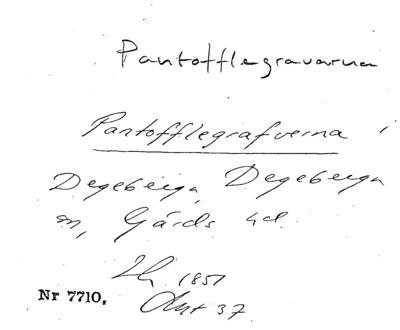 Pantofflegravarna
Pantofflegrafverna
Degeberga, Degeberga
sn, Gärds hd.
1851
Nr 7710.
37